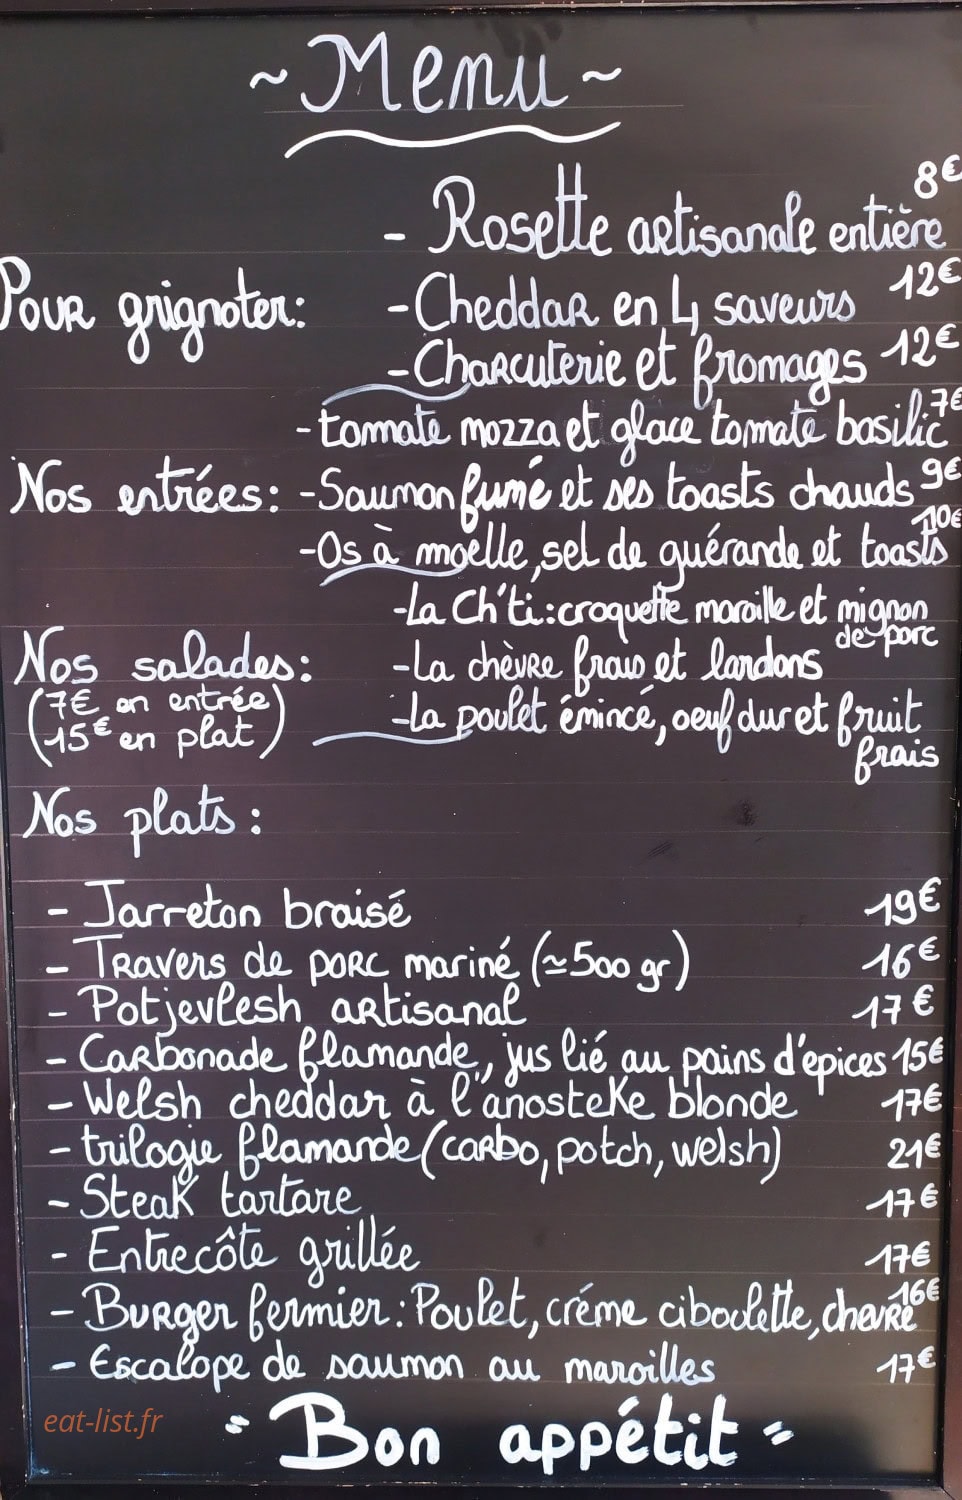 ~ Menu ~
8€
- Rosette artisanale entière
Pour grignoter: - Cheddar en 4 saveurs 12€
- Charcuterie et fromages 12€
- tomate mozza et glace tomate basilic 7€
Nos entrées: - Saumon fumé et ses toasts chauds 9€
- Os à moëlle, sel de guérande et toasts 10€
- La Ch'ti: croquette maroille et mignon
de porc
Nos salades: - La chèvre frais et lardons
(7€ en entrée
15€ en plat) - La poulet émincé, oeuf dur et fruit
frais
Nos plats:
- Jarreton braisé 19€
- Travers de porc mariné (≃500 gr) 16€
- Potjevlesh artisanal 17€
- Carbonade flamande, jus lié au pains d'épices 15€
- Welsh cheddar à l'anosteke blonde 17€
- trilogie flamande (carbo, potch, welsh) 21€
- Steak tartare 17€
- Entrecôte grillée 17€
- Burger fermier: Poulet, créme ciboulette, chevre 16€
- Escalope de saumon au maroilles 17€
eat-list.fr
" Bon appétit "